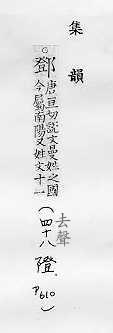 集韻
○鄧唐亘切說文曼姓之國
今屬南陽又姓文十一
去聲
(四十八隥 P610)